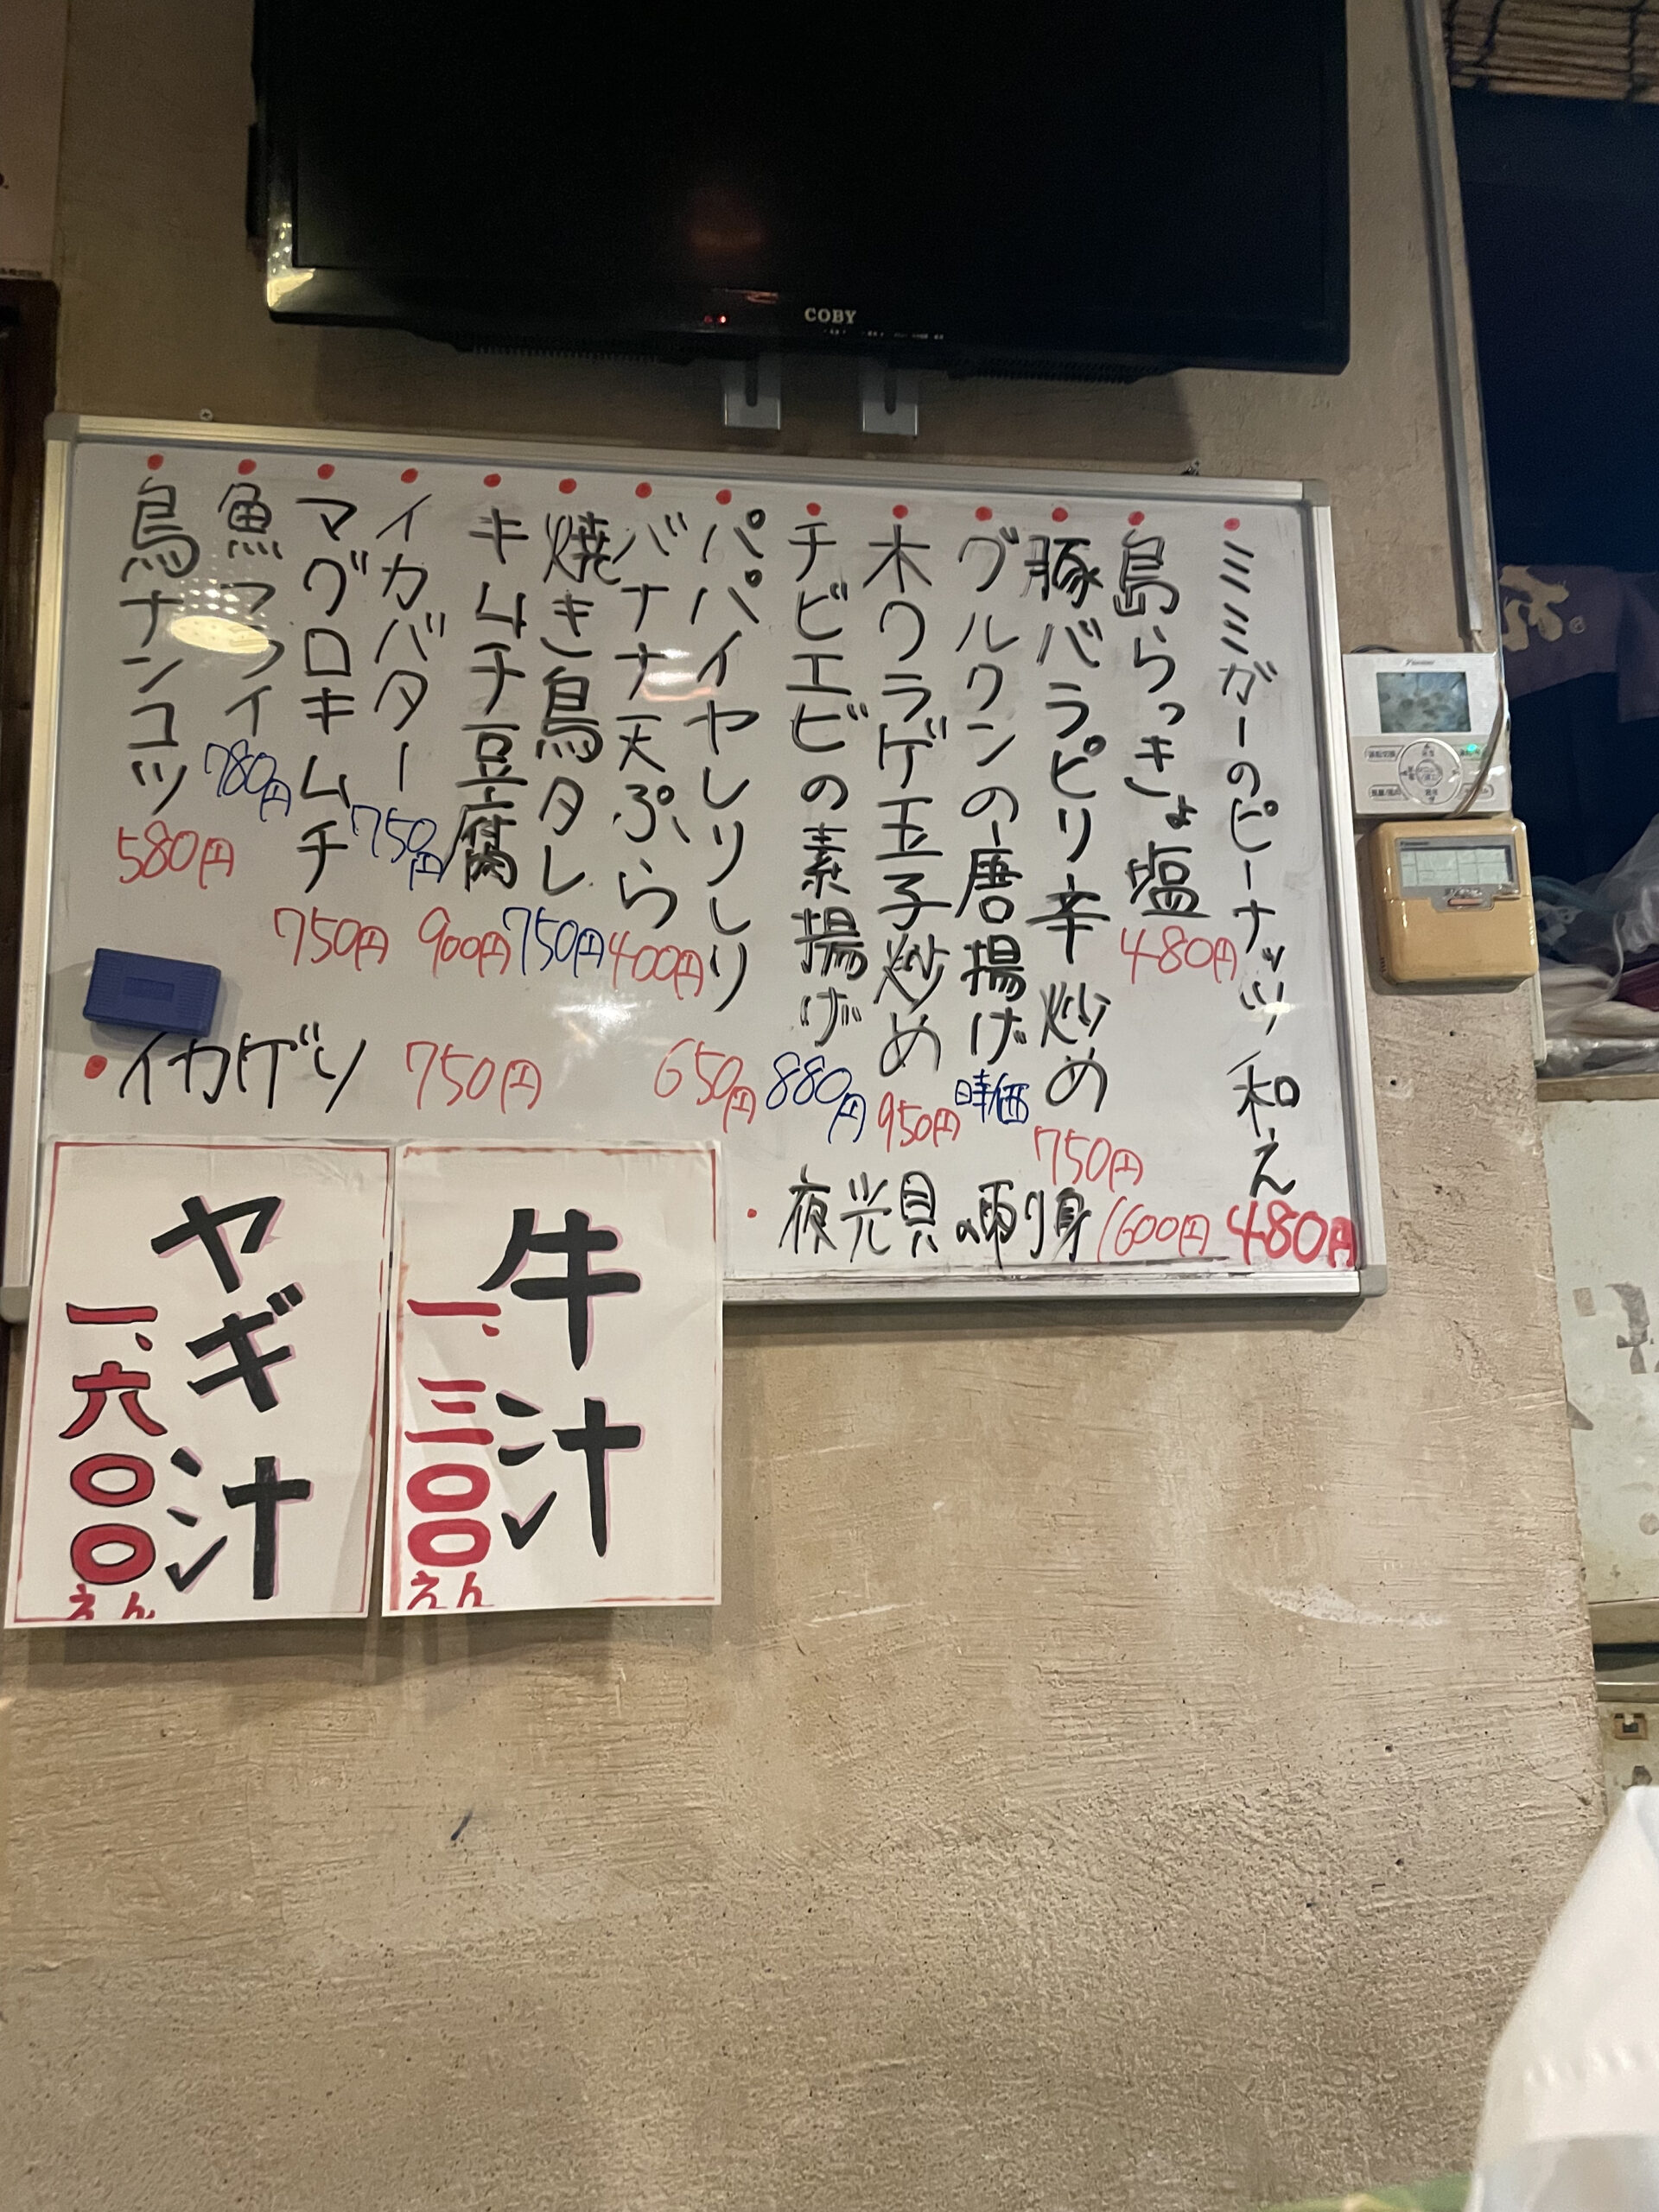 COBY
ミミガーのピーナッツ和え 480円
島らっきょ塩 480円
豚バラピリ辛炒め 750円
グルクンの唐揚げ 時価
木クラゲ玉子炒め 950円
チビエビの素揚げ 880円
パパイヤしりしり 650円
バナナ天ぷら 400円
焼き鳥タレ 750円
キムチ豆腐 900円
イカバター 750円
マグロキムチ 750円
魚フライ 780円
鳥ナンコツ 580円
イカゲソ 750円
夜光貝の刺り身 1600円
牛汁
一、三〇〇えん
ヤギ汁
一、六〇〇えん
Pioneer